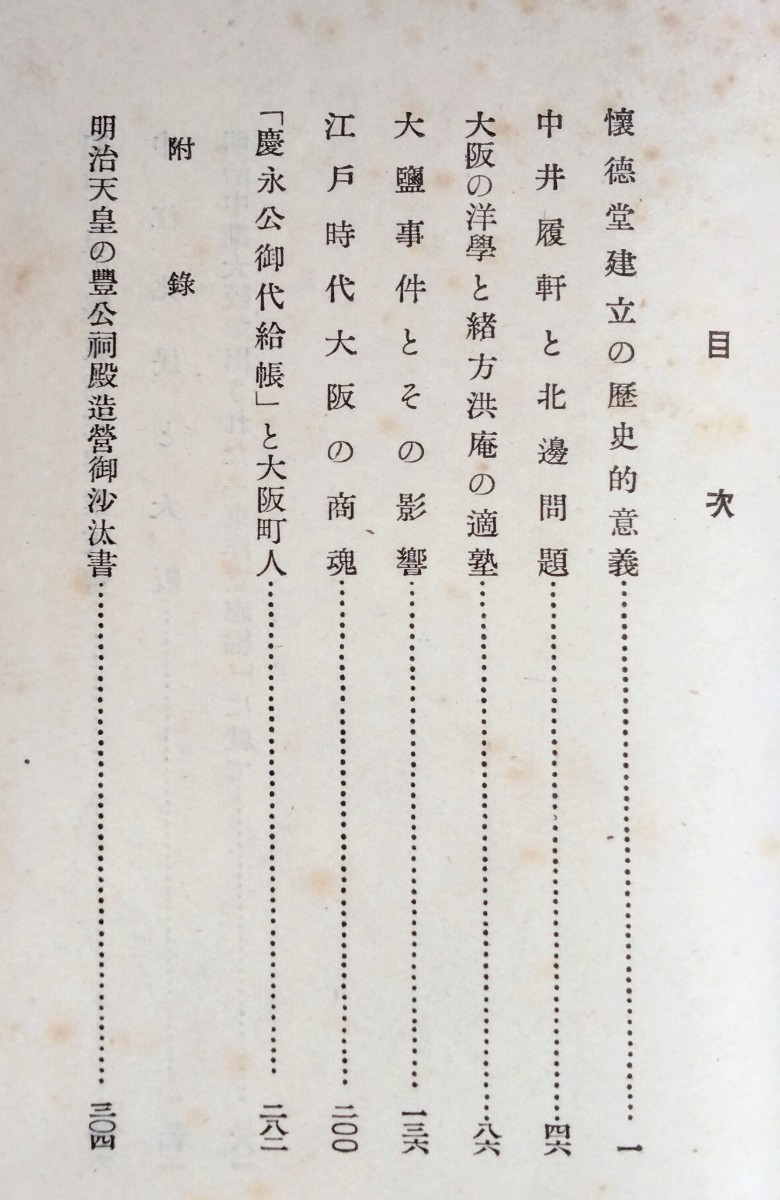 目次
懷德堂建立の歷史的意義……………………一
中井履軒と北邊問題……………………四六
大阪の洋學と緒方洪庵の適塾……………………八六
大鹽事件とその影響……………………一三六
江戶時代大阪の商魂……………………二〇〇
「慶永公御代給帳」と大阪町人……………………二八二
附錄
明治天皇の豐公祠殿造營御沙汰書……………………三〇四